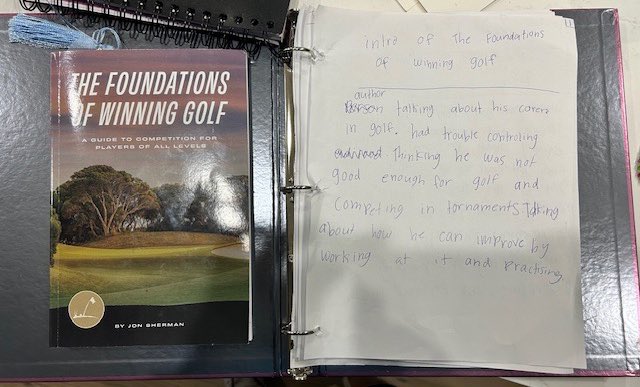 THE FOUNDATIONS
OF WINNING GOLF
A GUIDE TO COMPETITION FOR
PLAYERS OF ALL LEVELS
BY JON SHERMAN
intro of The Foundations
of winning golf
author
talking about his carers
in golf. had trouble controling
Thinking he was not
good enough for golf and
competing in tornaments. Talking
about how he can improve by
working at it and Practising